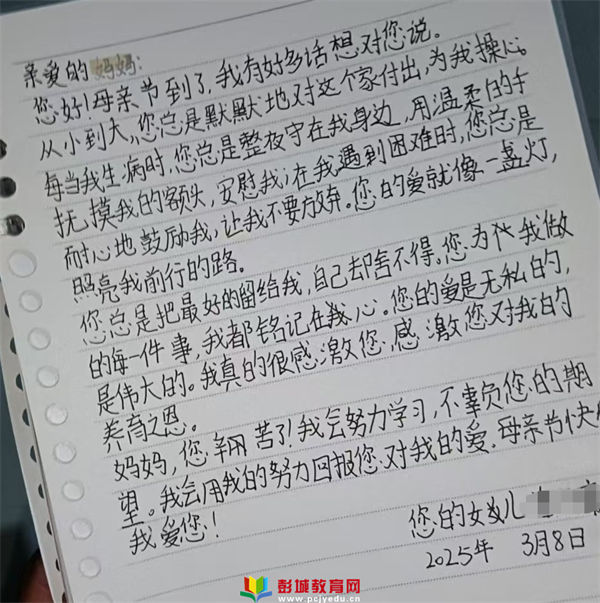 亲爱的妈妈:
您好!母亲节到了,我有好多话想对您说。
从小到大,您总是默默地对这个家付出,为我操心。
每当我生病时,您总是整夜守在我身边,用温柔的手
抚摸我的额头,安慰我;在我遇到困难时,您总是
耐心地鼓励我,让我不要放弃。您的爱就像一盏灯,
照亮我前行的路。
您总是把最好的留给我,自己却舍不得。您为我做
的每一件事,我都铭记在我心。您的爱是无私的,
是伟大的。我真的很感激您,感激您对我的
养育之恩。
妈妈,您辛苦了!我会努力学习,不辜负您的期
望。我会用我的努力回报您对我的爱。母亲节快
我爱您!
您的女儿
2025年 3月8日
彭城教育网
www.pcjyedu.cn